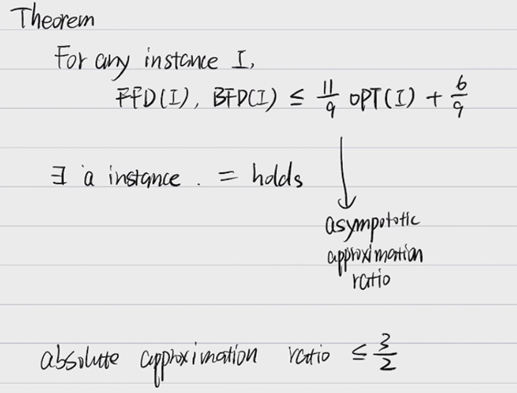 Theorem
For any instance I,
FFD(I), BFD(I) ≤ 11/9 OPT(I) + 6/9
∃ a instance . = holds
asympototic
approximation
ratio
absolute approximation ratio ≤ 3/2